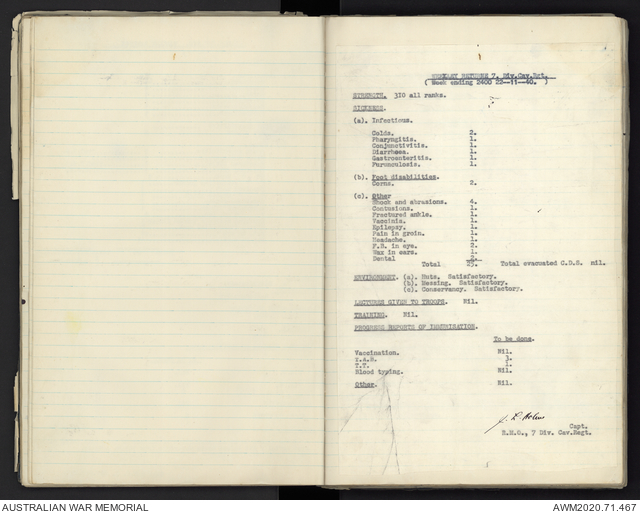 WEEKLY RETURNS 7. Div.Cav.Rgt.
( Week ending 2400 22--11--40. )
STRENGTH. 310 all ranks.
SICKNESS.
(a). Infectious.
Colds. 2.
Pharyngitis. 1.
Conjunctivitis. 1.
Diarrhoea. 1.
Gastroenteritis. 1.
Furunculosis. 1.
(b). Foot disabilities.
Corns. 2.
(c). Other
Shock and abrasions. 4.
Contusions. 1.
Fractured ankle. 1.
Vaccinia. 1.
Epilepsy. 1.
Pain in groin. 1.
Headache. 1.
F.B. in eye. 2.
Wax in ears. 1.
Dental 2.
Total 25. Total evacuated C.D.S. nil.
ENVIRONMENT. (a). Huts. Satisfactory.
(b). Messing. Satisfactory.
(c). Conservancy. Satisfactory.
LECTURES GIVEN TO TROOPS. Nil.
TRAINING. Nil.
PROGRESS REPORTS OF IMMUNISATION.
To be done.
Vaccination. Nil.
T.A.B. 3.
T.T. 1.
Blood typing. Nil.
Other. Nil.
Capt.
R.M.O., 7 Div. Cav.Regt.
AUSTRALIAN WAR MEMORIAL
AWM2020.71.467